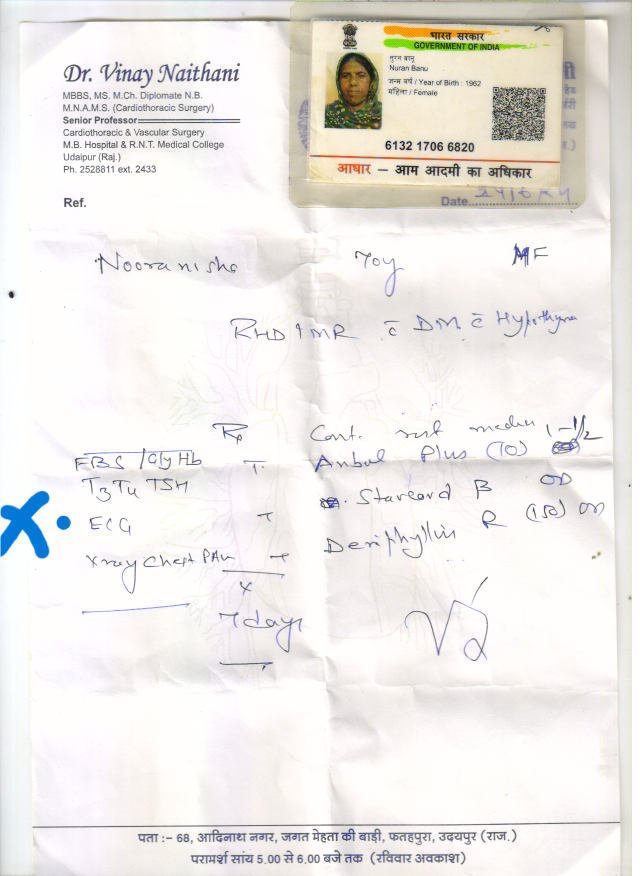 Dr. Vinay Naithani
MBBS, MS. M.Ch. Diplomate N.B.
M.N.A.M.S. (Cardiothoracic Surgery)
Senior Professor
Cardiothoracic & Vascular Surgery
M.B. Hospital & R.N.T. Medical College
Udaipur (Raj.)
Ph. 2528811 ext. 2433
भारत सरकार
GOVERNMENT OF INDIA
नुरन बानू
Nuran Banu
जन्म वर्ष / Year of Birth : 1962
महिला / Female
6132 1706 6820
आधार – आम आदमी का अधिकार
Ref.
Date
Nooranisha 70y F
RHD MR c̄ DM c̄
Cont. rest
FBS / Gly Hb T. Plus (10) 1-1/2
T3 T4 TSH Starcard B OD
ECG T Deriphyllin R (150) OD
Xray Chest PAV
x
7 days
पता :– 68, आदिनाथ नगर, जगत मेहता की बाड़ी, फतहपुरा, उदयपुर (राज.)
परामर्श सांय 5.00 से 6.00 बजे तक (रविवार अवकाश)